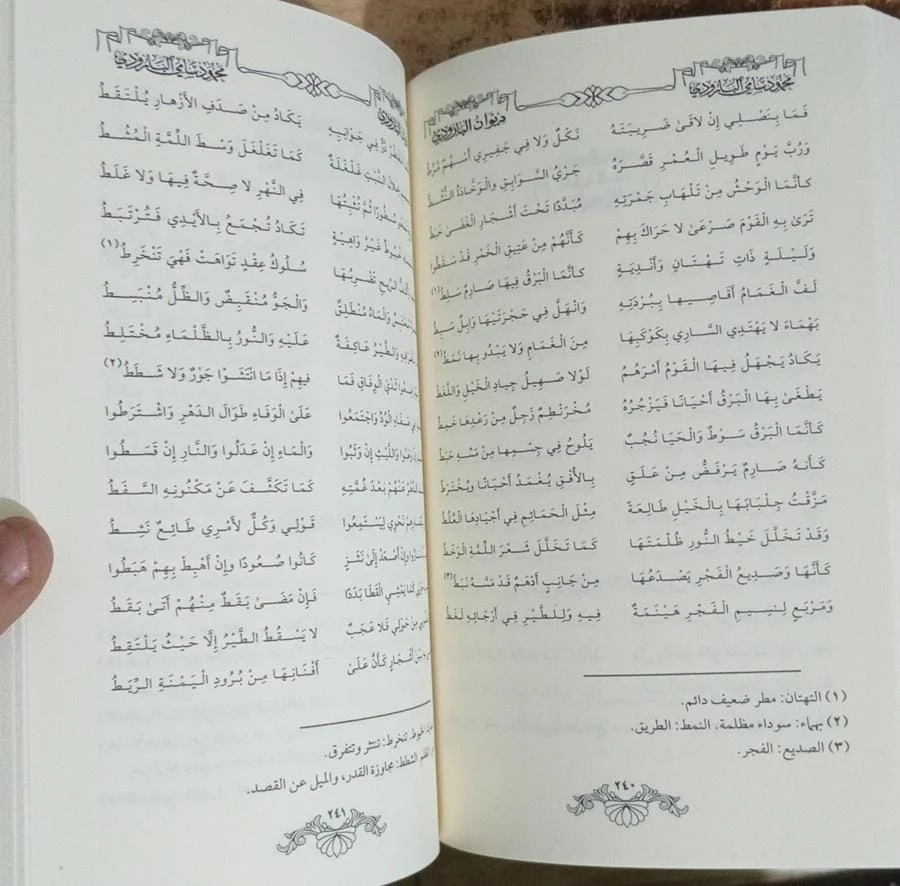 محمود سامي البارودي
ديوان البارودي
فَمَا بِنَصْلِي إِنْ لاقَىٰ ضَرِيبَتَهُ نَكْلٌ وَلا فِي جَفِيرِي أَسْهُمٌ مُرُطُ
وَرُبَّ يَوْمٍ طَوِيلِ الْعُمْرِ قَصَّرَهُ جَرْيُ السَّوَابِقِ وَالْوَخَّادَةُ النُّشُطُ
كأَنَّمَا الْوَحْشُ مِنْ تَلْهَابِ جَمْرَتِهِ مُبَدَّدًا تَحْتَ أَشْجَارِ الْغَضَىٰ خَبَطُ
تَرَىٰ بِهِ الْقَوْمَ صَرْعَىٰ لا حَرَاكَ بِهِمْ كَأَنَّهُمْ مِنْ عَتِيقِ الْخَمْرِ قَدْ سَقَطُوا
وَلَيْلَةٍ ذَاتِ تَهْتَانٍ وَأَنْدِيَةٍ كأَنَّمَا الْبَرْقُ فِيهَا صَارِمٌ سَلِطُ (١)
لَفَّ الْغَمَامُ أَقَاصِيها بِبُرْدَتِهِ وَانْهَلَّ فِي حَجْرَتَيْهَا وَابِلٌ سَبِطُ
بَهْمَاءَ لا يَهْتَدِي السَّارِي بِكَوْكَبِهَا مِنَ الْغَمَامِ وَلا يَبْدُو بِها نَمَطُ (٢)
يَكَادُ يَجْهَلُ فِيهَا الْقَوْمُ أَمْرَهُمُ لَوْلا صَهِيلُ جِيادِ الْخَيْلِ وَاللَّغَطُ
يَطْغَىٰ بِهَا الْبَرْقُ أَحْيَانًا فَيَزْجُرُهُ مُخْرَنْطِمٌ زَجِلٌ مِنْ رَعْدِهَا خَمِطُ
كَأَنَّمَا الْبَرْقُ سَوْطٌ وَالْحَيَا نُجُبٌ يَلُوحُ فِي جِسْمِهَا مِنْ مَسِّهِ حَبَطُ
كَأَنَّهُ صَارِمٌ يَرْفَضُّ مِنْ عَلَقٍ بِالأُفْقِ يُغْمَدُ أَحْيَانًا وَيُخْتَرَطُ
مَزَّقْتُ جِلْبَابَهَا بِالْخَيْلِ طَالِعَةً مِثْلَ الْحَمَائِمِ فِي أَجْيَادِهَا الْعُلُطُ
وَقَدْ تَخَلَّلَ خَيْطُ النُّورِ ظُلْمَتَهَا كَمَا تَخَلَّلَ شَعْرَ اللِّمَّةِ الْوَخَطُ
كَأَنَّهَا وَصَدِيعُ الْفَجْرِ يَصْدَعُهَا مِنْ جَانِبٍ أَدْهَمٌ قَدْ مَسَّهُ نَبَطُ (٣)
وَمَرْبَعٍ لِنَسِيمِ الْفَجْرِ هَيْنَمَةٌ فِيهِ وَلِلطَّيْرِ فِي أَرْجَائِهِ لَغَطُ
(١) التهتان: مطر ضعيف دائم.
(٢) بهماء: سوداء مظلمة. النمط: الطريق.
(٣) الصديع: الفجر.
٢٤٠
محمود سامي البارودي
الْقَطْرِ دُرٌّ فِي جَوَانِبِهِ يَكَادُ مِنْ صَدَفِ الأَزْهارِ يُلْتَقَطُ
خِلالَ النَّبْتِ غَلْغَلَةٌ كَمَا تَغَلْغَلَ وَسْطَ اللِّمَّةِ الْمُشُطُ
سُطُورًا ثُمَّ تُثْبِتُهَا فِي النَّهْرِ لا صِحَّةٌ فِيهَا وَلا غَلَطُ
خُيُوطٌ غَيْرُ وَاهِيَةٍ تَكَادُ تُجْمَعُ بِالأَيْدِي فَتُرْتَبَطُ
الرِّيحِ تَضْرِبُهَا سُلُوكُ عِقْدٍ تَوَاهَتْ فَهْيَ تَنْخَرِطُ (١)
وَالْمَاءُ مُنْطَلِقٌ وَالْجَوُّ مُنْقَبِضٌ وَالظِّلُّ مُنْبَسِطُ
وَالطَّيْرُ عَاكِفَةٌ عَلَيْهِ وَالنُّورُ بِالظَّلْمَاءِ مُخْتَلِطُ
ثُدِيَّ الْوِفَاقِ فَمَا فِيهِمْ إِذَا مَا انْتَشَوْا جَوْرٌ وَلا شَطَطُ (٢)
الْوُدِّ وَاجْتَمَعُوا عَلَىٰ الْوَفَاءِ طَوَالَ الدَّهْرِ وَاشْتَرَطُوا
وَاللَّيْثِ إِنْ وَثَبُوا وَالْمَاءِ إِنْ عَدَلُوا وَالنَّارِ إِنْ قَسَطُوا
مِنْهُمْ بَعْدَ غُمَّتِهِ كَمَا تَكَشَّفَ عَنْ مَكْنُونِهِ السَّفَطُ
نَحْوِي لِيَسْتَمِعُوا قَوْلِي وَكُلٌّ لأَمْرِي طَائِعٌ نَشِطُ
وَإِنْ أَصْعَدْ إِلَىٰ نَشَزٍ كَانُوا صُعُودًا وَإِنْ أَهْبِطْ بِهِمْ هَبَطُوا
كَمَا يَمْشِي الْقَطَا بَدَدًا فَإِنْ مَضَىٰ بَقَطٌ مِنْهُمْ أَتَىٰ بَقَطُ
مِنْ حَوْلِي فَلا عَجَبٌ لا يَسْقُطُ الطَّيْرُ إِلَّا حَيْثُ يَلْتَقِطُ
أَشْجَارٍ كَأَنَّ عَلَىٰ أَفْنَانِهَا مِنْ بُرُودِ الْيَمْنَةِ الرِّيَطُ
الخيوط. تنخرط: تنتثر وتتفرق.
الشطط: مجاوزة القدر، والميل عن القصد.
٢٤١